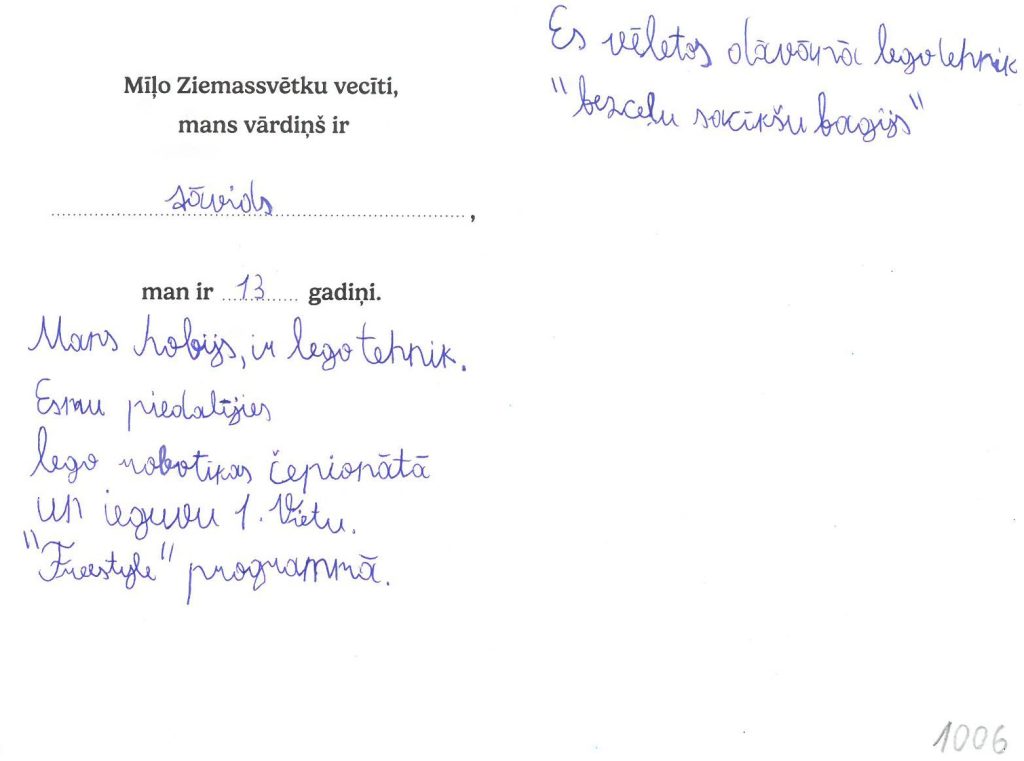 Mīļo Ziemassvētku vecīti,
mans vārdiņš ir
,
man ir 13 gadiņi.
Mans hobijs, ir lego tehnik.
Esmu piedalījies
lego robotikas čepionātā
un ieguvu 1. Vietu.
"Freestyle" programmā.
Es vēletos dāvānā lego tehnik
"bezceļu sacīkšu bagijs"
1006